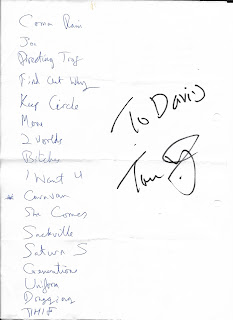 Coma Rain
Joe
Directing Traf
Find Out Why
Keep Circle
Mom
2 Worlds
Bitches
I Want U
* Caravan
She Comes
Sackville
Saturn 5
Generations
Uniform
Dragging
THIF
To Davis
Tom